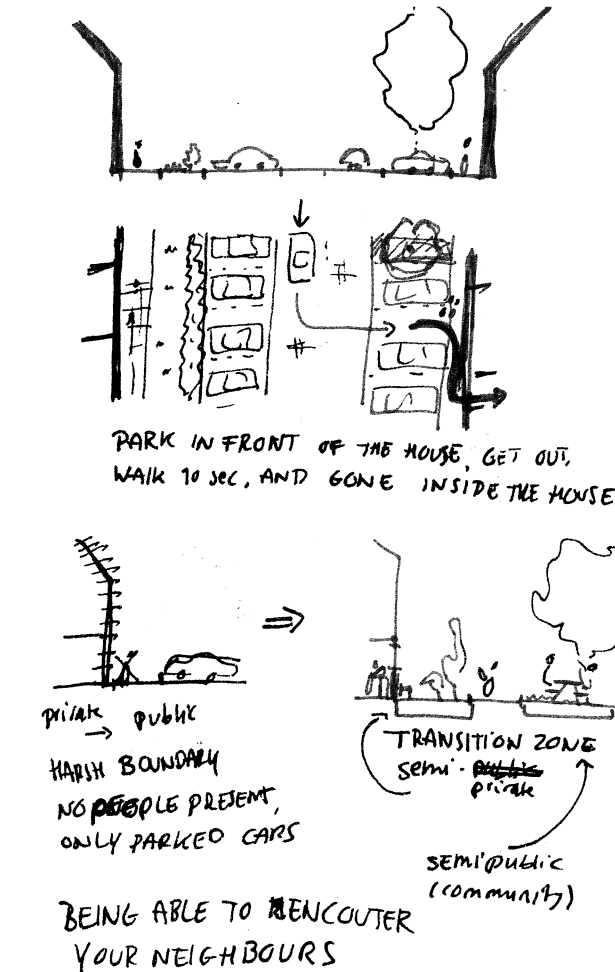 PARK IN FRONT OF THE HOUSE, GET OUT,
WALK 10 SEC, AND GONE INSIDE THE HOUSE
private public
HARSH BOUNDARY
NO PEOPLE PRESENT,
ONLY PARKED CARS
TRANSITION ZONE
semi-
private
semipublic
(community)
BEING ABLE TO ENCOUTER
YOUR NEIGHBOURS